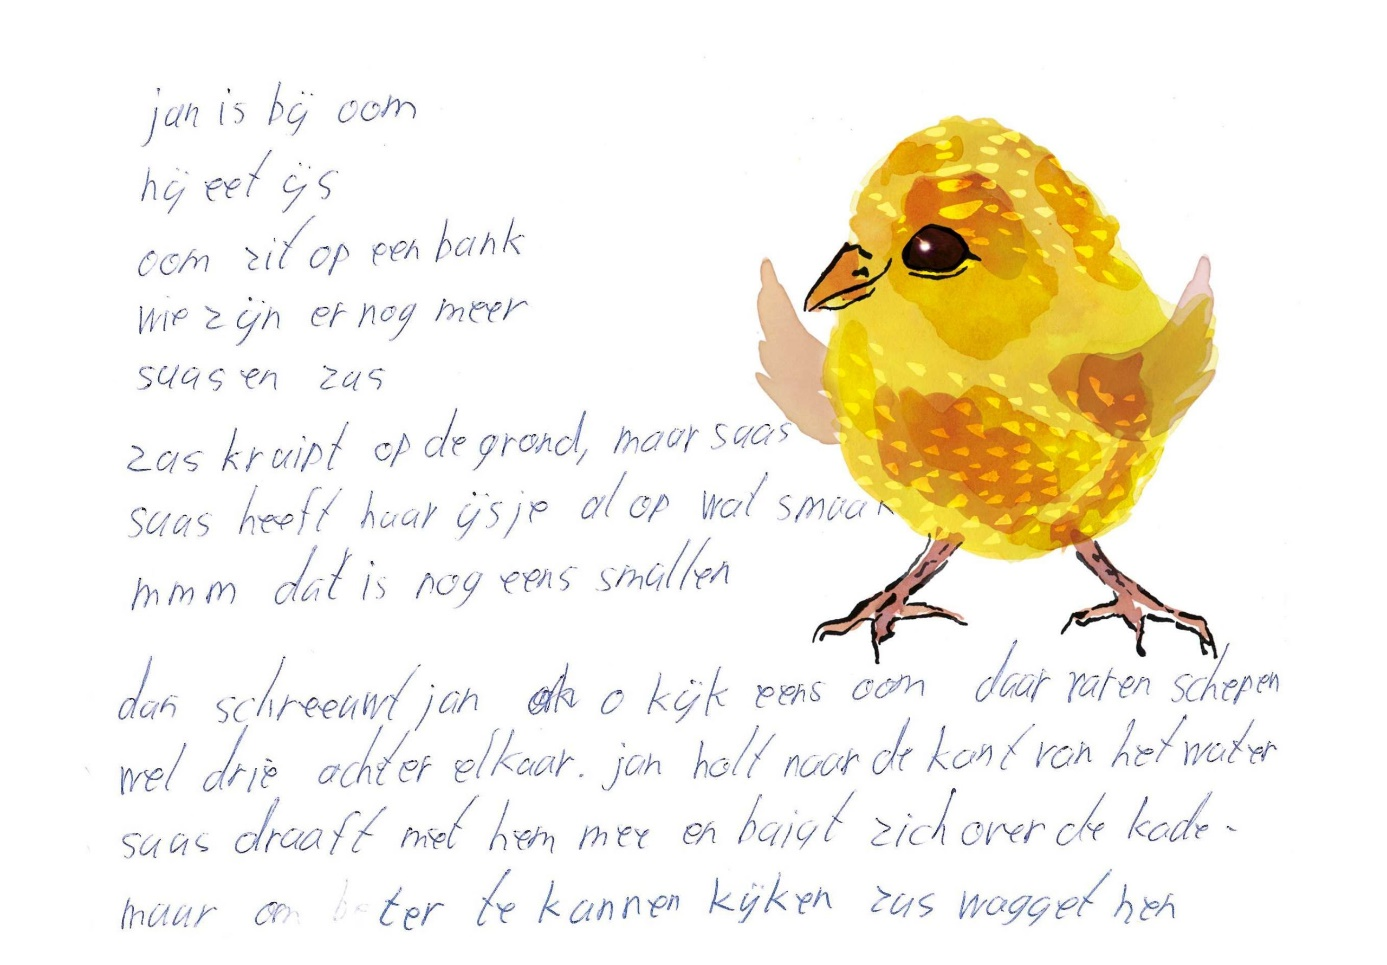 jan is bij oom
hij eet ijs
oom zit op een bank
wie zijn er nog meer
saas en zas
zas kruipt op de grond, maar saas
saas heeft haar ijsje al op wat smaak
mmm dat is nog eens smullen
dan schreeuwt jan o kijk eens oom daar varen schepen
wel drie achter elkaar. jan holt naar de kant van het water
saas draaft met hem mee en buigt zich over de kade -
maar om beter te kunnen kijken zas wagget hen